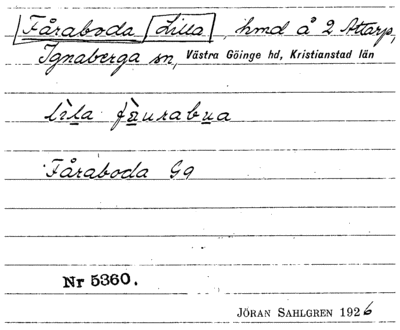 Fåraboda Lilla, hmd å 2 Attarp,
Ignaberga sn, Västra Göinge hd, Kristianstad län
lìla fàurabua
Fåraboda G9
Nr 5360.
JÖRAN SAHLGREN 1926